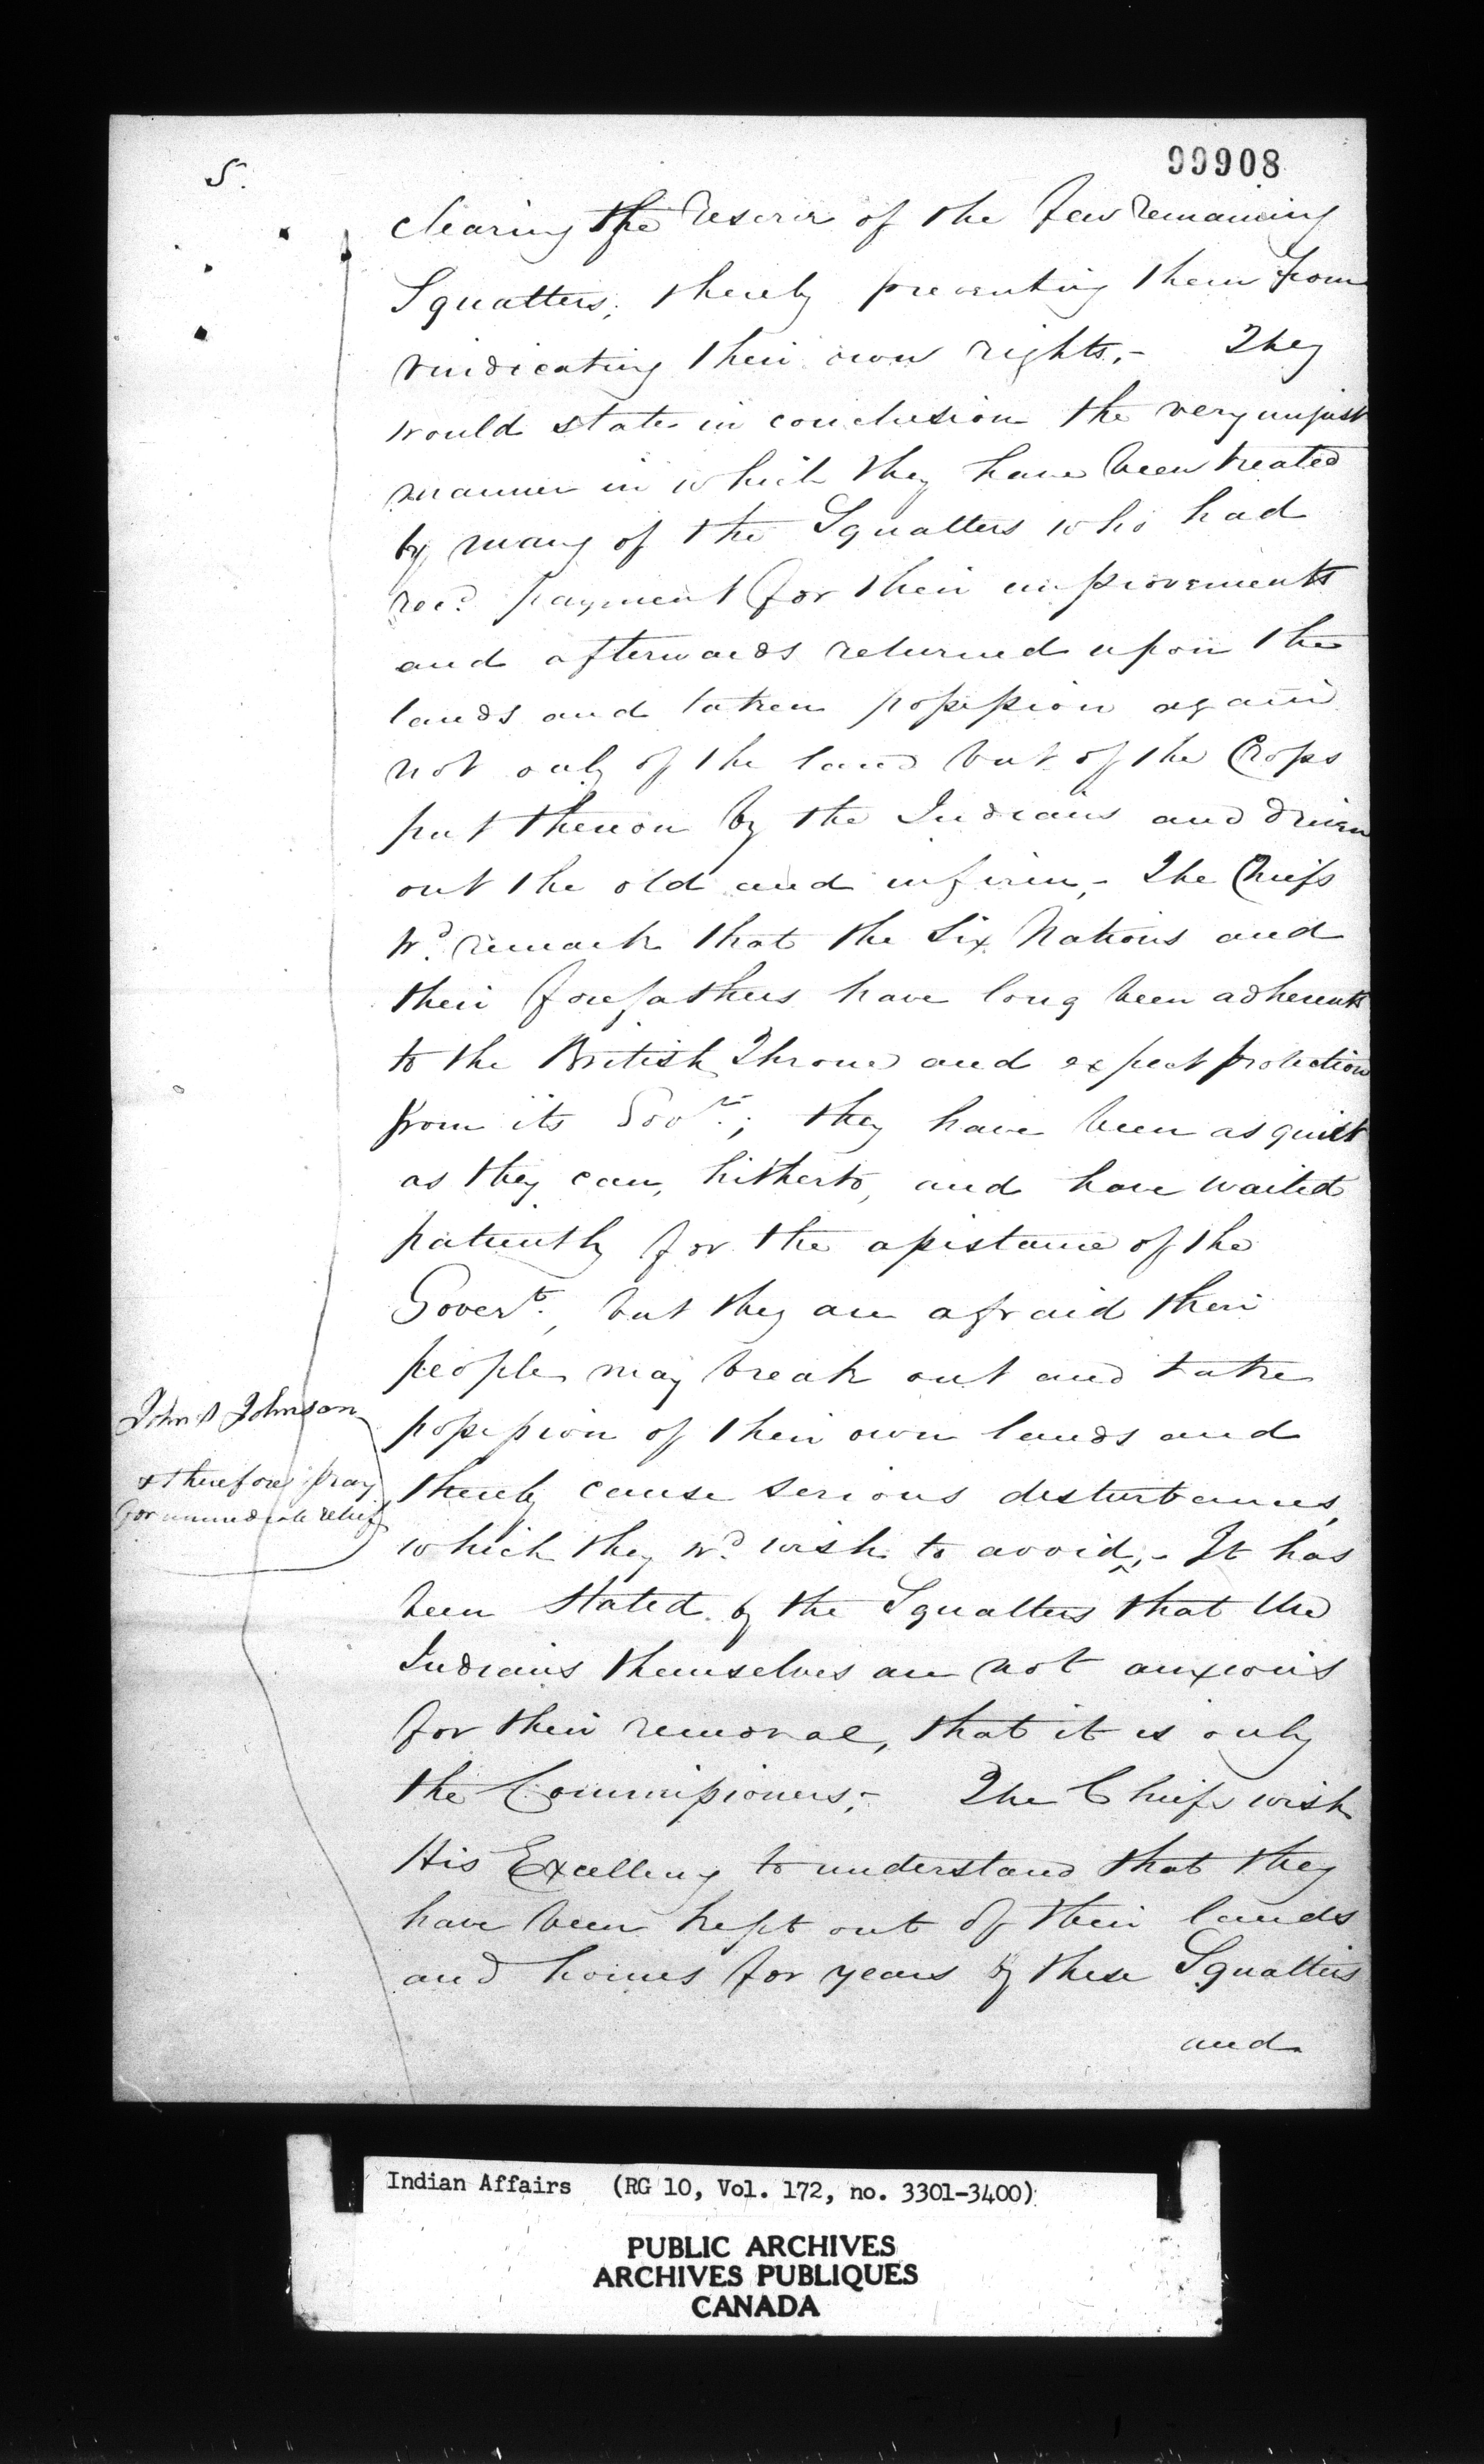 99908
5.
clearing the Reserve of the few remaining
Squatters, thereby preventing them from
vindicating their own rights,- They
would state in conclusion the very unjust
manner in which they have been treated
by many of the Squatters who had
rec.d payment for their improvements
and afterwards returned upon the
lands and taken possession again
not only of the land but of the Crops
put thereon by the Indians and driven
out the old and infirm,- The Chiefs
w.d remark that the Six Nations and
their forefathers have long been adherents
to the British Throne and expect protection
from its Gov.t; they have been as quiet
as they can, hitherto, and have waited
patiently for the assistance of the
Gover.t, but they are afraid their
people may break out and take
possession of their own lands and
thereby cause serious disturbances,
which they w.d wish to avoid,^- It has
been stated by the Squatters that the
Indians themselves are not anxious
for their removal, that it is only
the Commissioners;- The Chiefs wish
His Excellency to understand that they
have been kept out of their lands
and homes for years by these Squatters
and
John S Johnson
& therefore pray
for immediate relief
Indian Affairs (RG 10, Vol. 172, no. 3301-3400)
PUBLIC ARCHIVES
ARCHIVES PUBLIQUES
CANADA